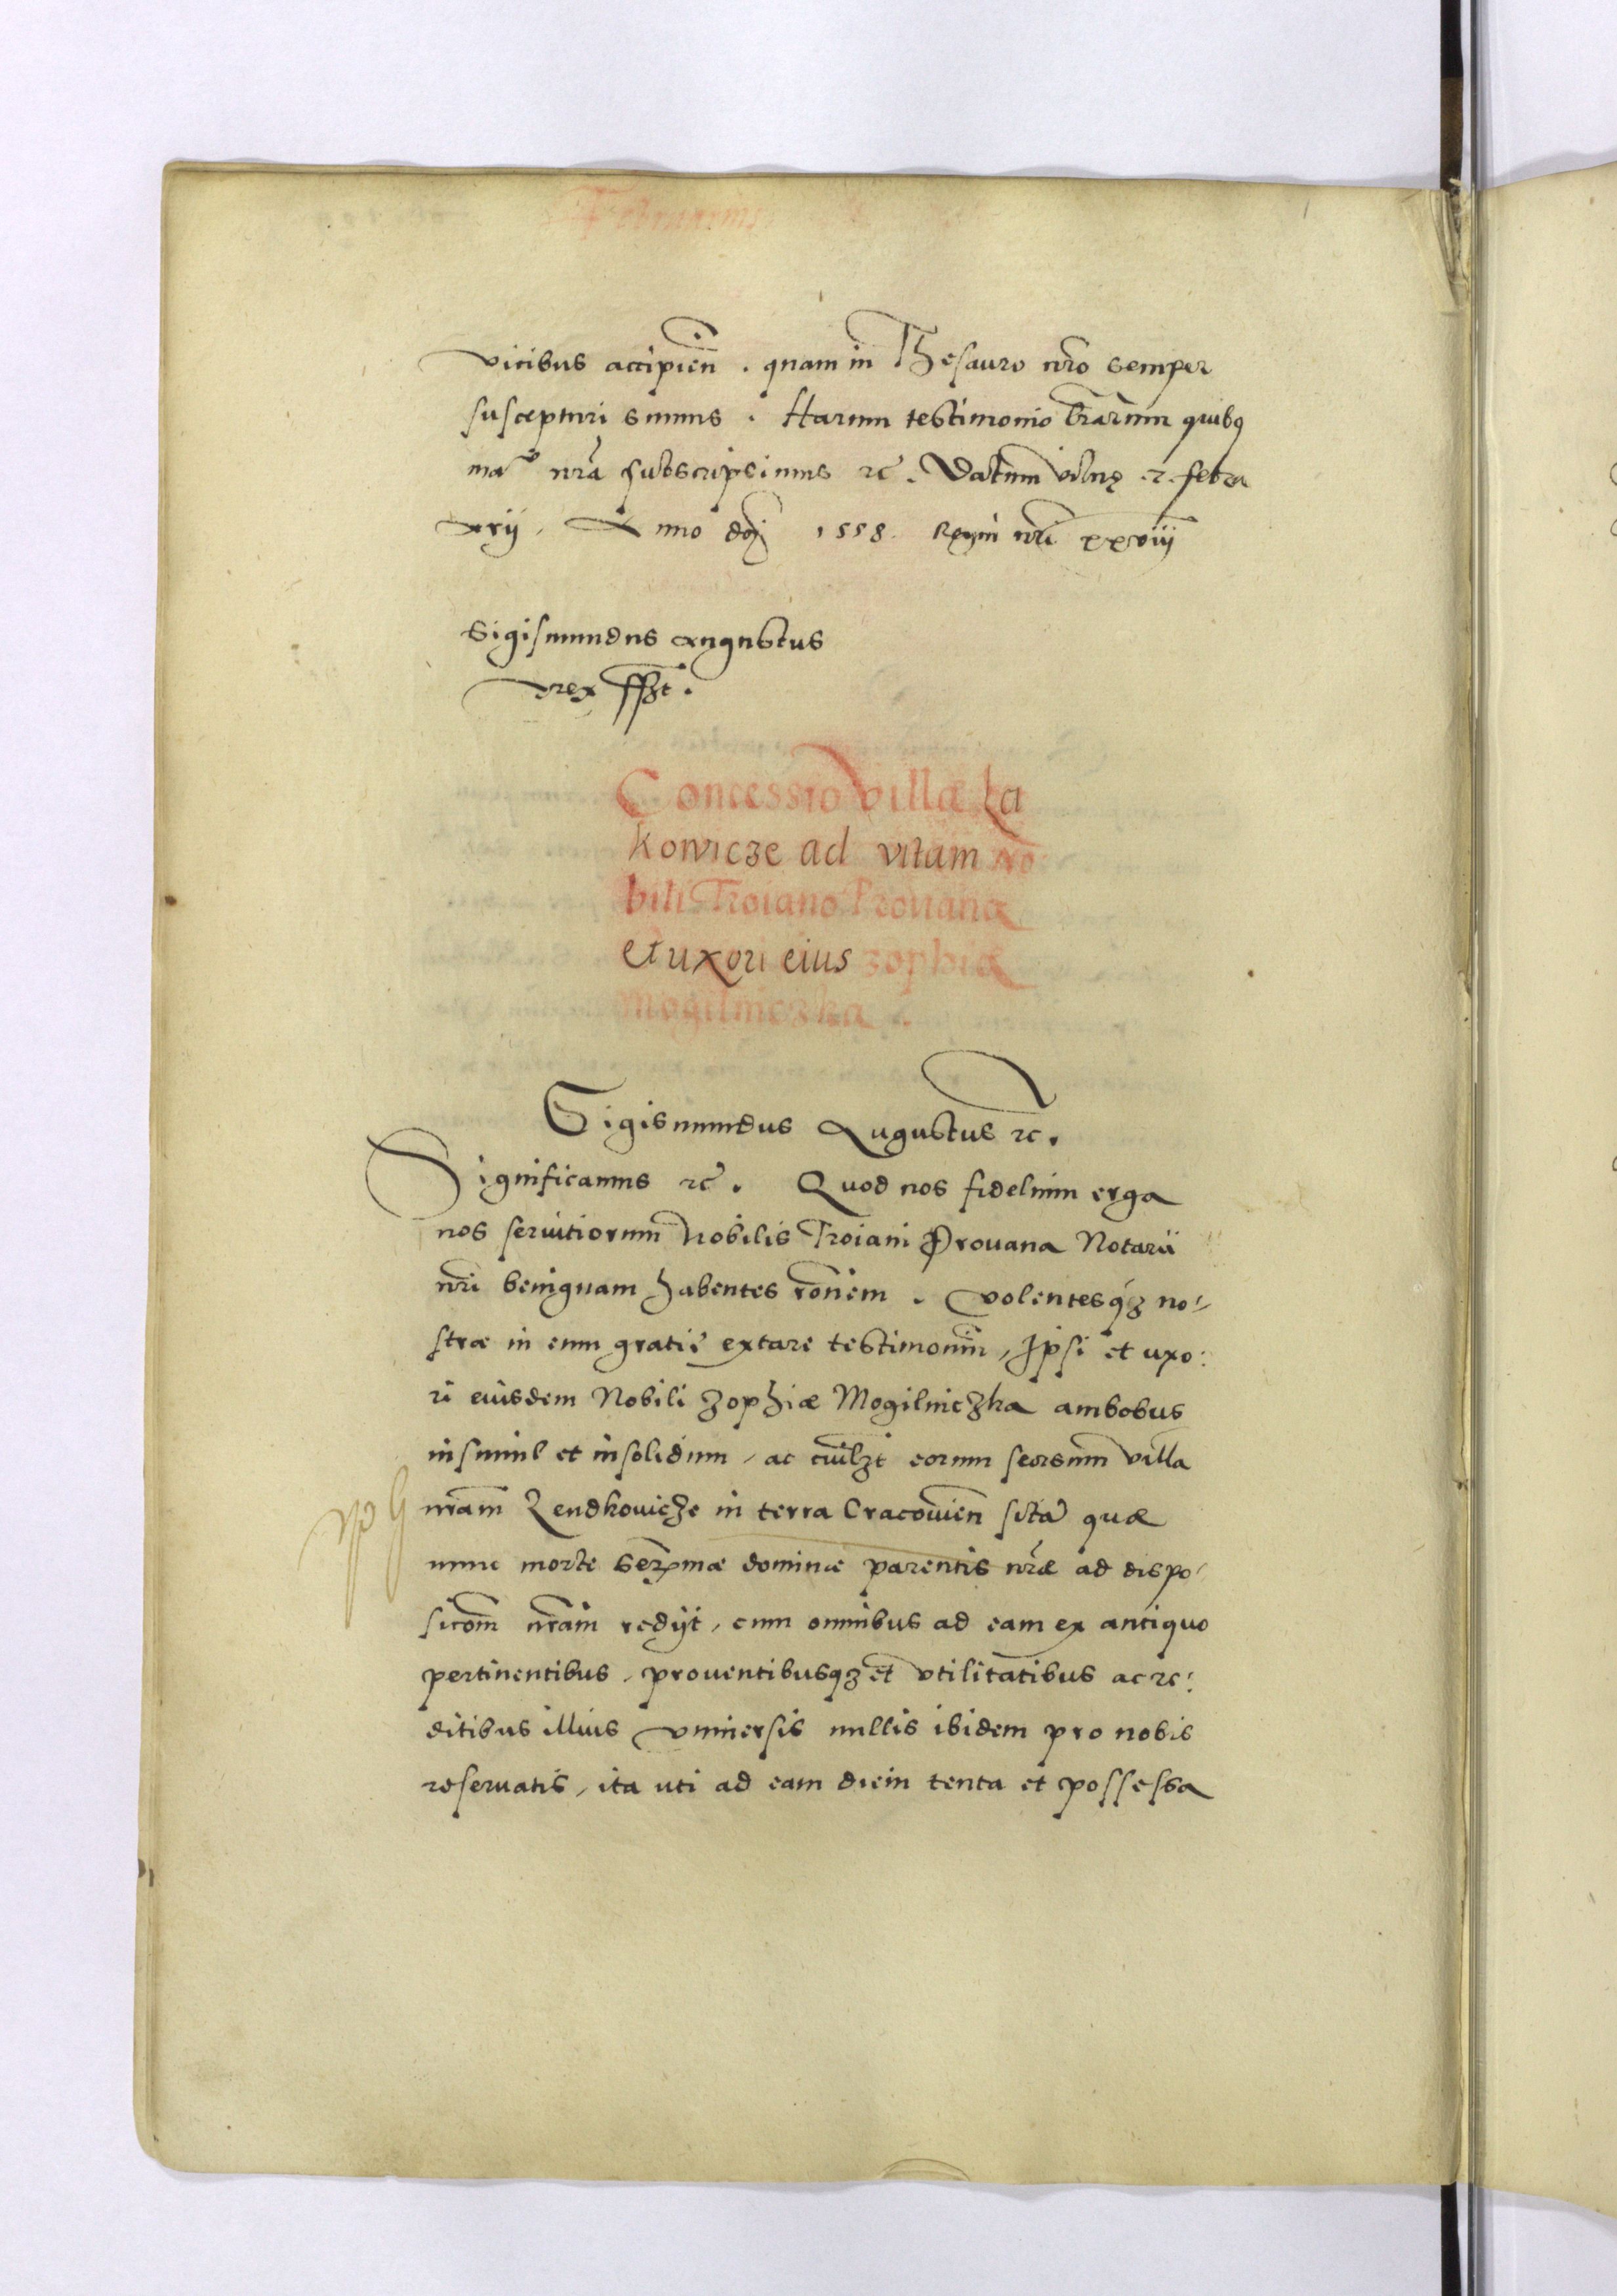 Februarius
vicibus accipieñ. quam in Thesauro nro semper
suscepturi sumus. Harum testimonio lrarum quibq
manu nra subscripsimus rc. Datum Vilnę febru
Anno doj 1558. Regni nri xxviiij
Sigismundus Augustus
rex sszt.
Concessio villæ La
kowicze ad vitam No
bili Troiano Prouana
et uxori eius Zophiæ
Mogilniczka.
Sigismundus Augustus rc.
Significamus rc. Quod nos fidelium erga
nos seruitiorum Nobilis Troiani Prouana Notarii
nri benignam habentes ronem. Volentesqz no-
stræ in eum gratię extare testimonium, Ipsi et uxo:
ri eiusdem Nobili Zophiæ Mogilniczka ambobus
insimul et insolidum, ac cuilzt eorum seorsum villa
nram Zendkovicze in terra Cracovien sitã quæ
nunc morte Serma dominæ parentis nræ ad dispo-
sicom nram redijt, cum omnibus ad eam ex antiquo
pertinentibus, proventibusqz et vtilitatibus ac re:
ditibus illius vniuersis nullis ibidem pro nobis
reseruatis, ita uti ad eam diem tenta et possessa